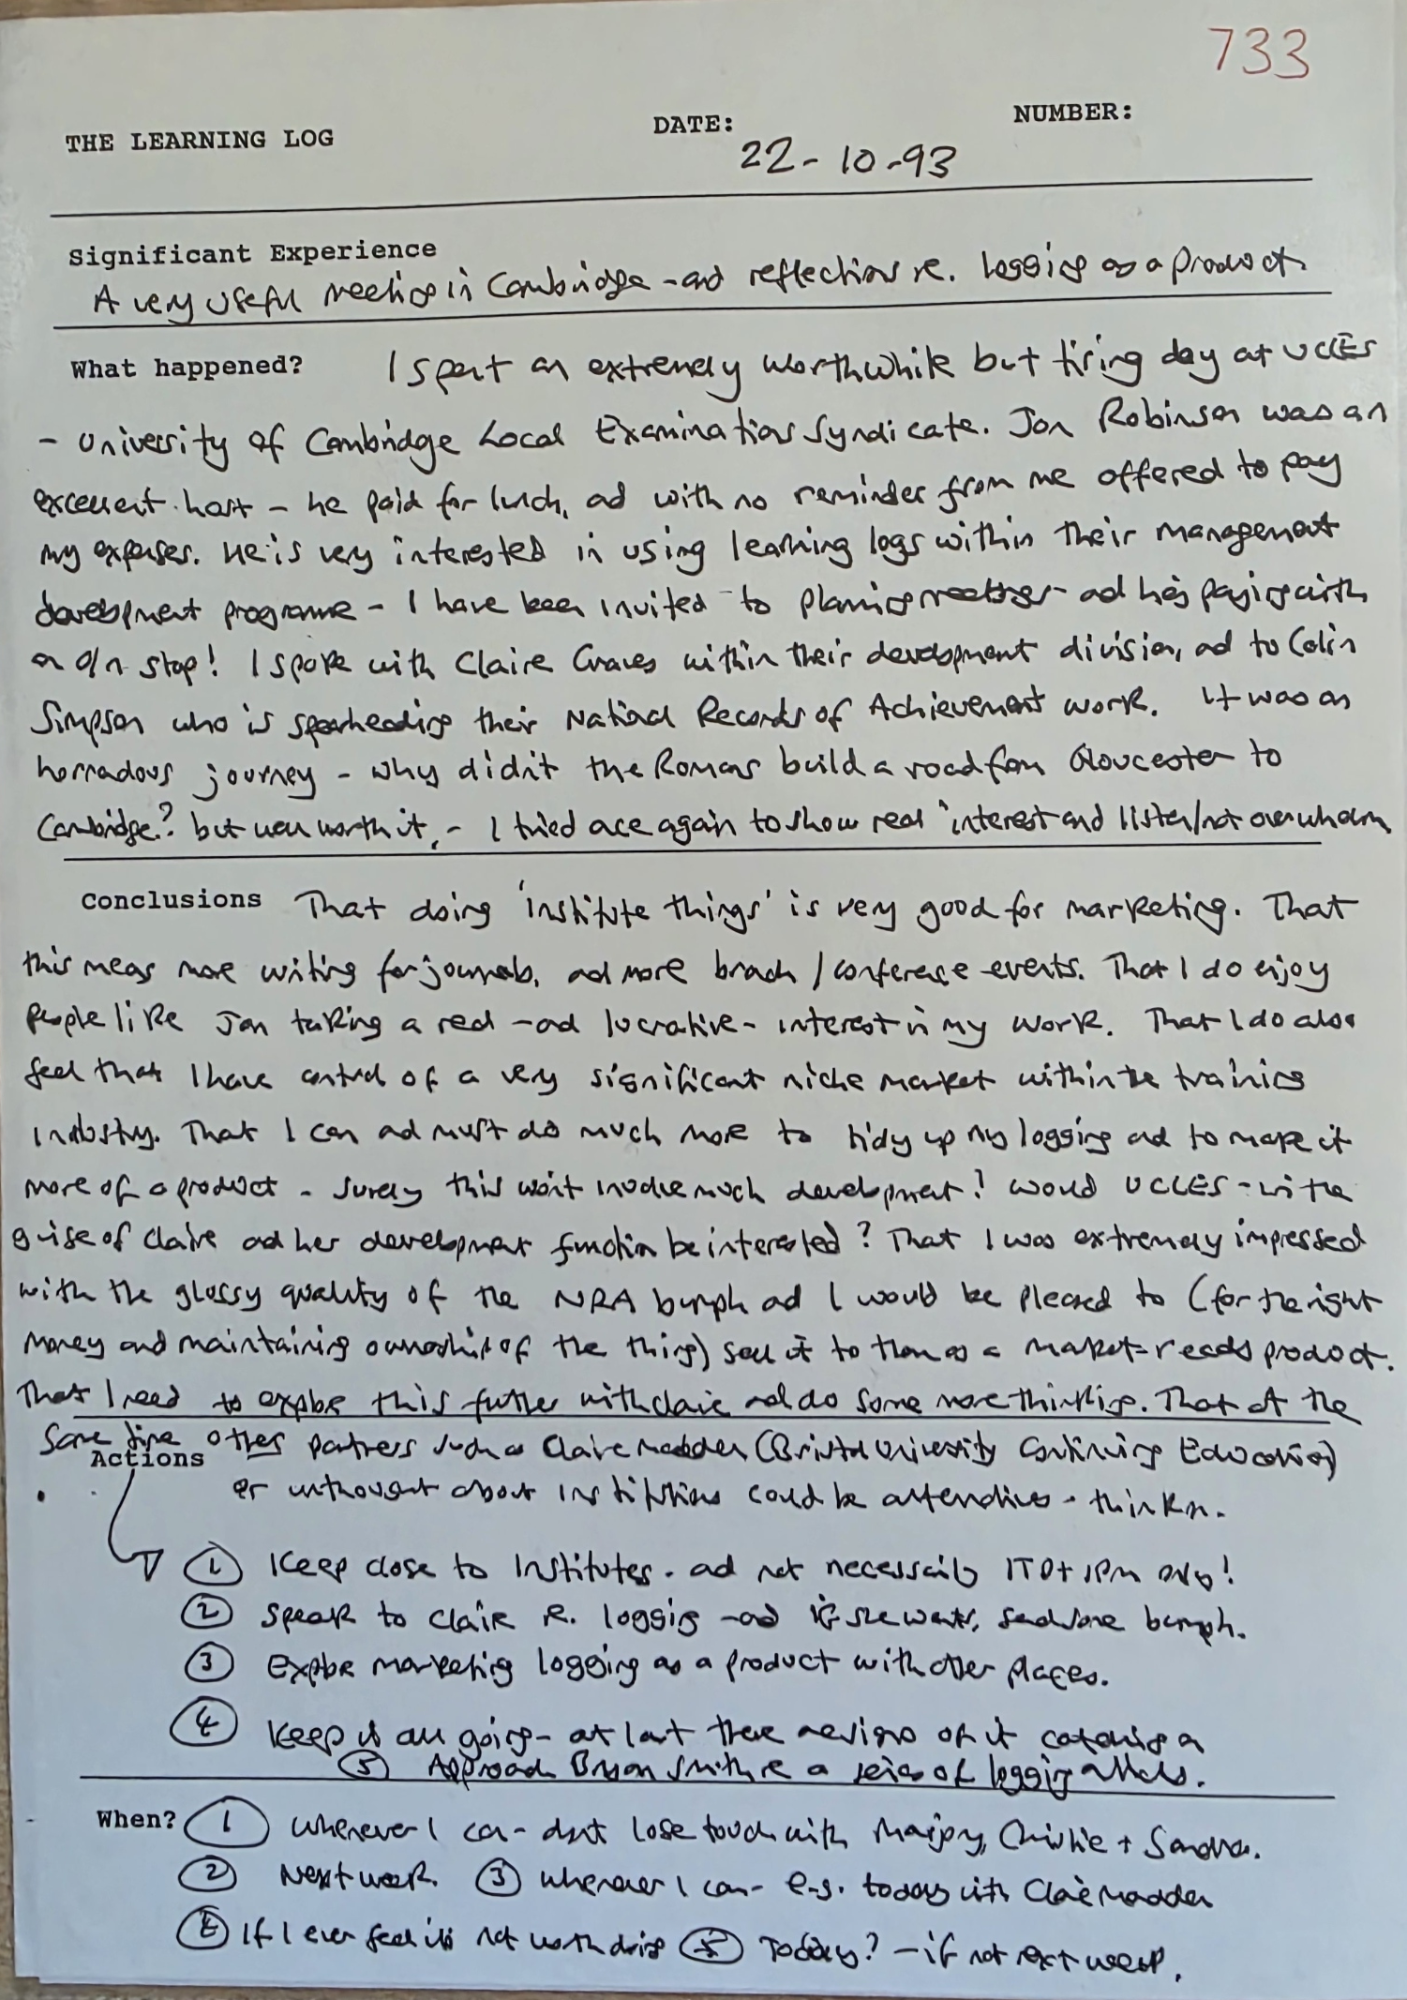 733
THE LEARNING LOG DATE: NUMBER:
22-10-93
Significant Experience
A very useful meeting in Cambridge - and reflections re. logging as a product
What happened? I spent an extremely worthwhile but tiring day at UCLES
- University of Cambridge Local Examinations Syndicate. Jon Robinson was an
excellent host - he paid for lunch, and with no reminder from me offered to pay
my expenses. He is very interested in using learning logs within their management
development programme - I have been invited to planning meetings - and he's paying with
an o/n stop! I spoke with Claire Graves within their development division, and to Colin
Simpson who is spearheading their National Records of Achievement work. It was an
horradous journey - why didn't the Romans build a road from Gloucester to
Cambridge? but well worth it, - I tried once again to show real interest and listen/not overwhelm
Conclusions That doing 'institute things' is very good for marketing. That
this means more writing for journals, and more branch / conference events. That I do enjoy
people like Jon taking a real - and lucrative - interest in my work. That I do also
feel that I have control of a very significant niche market within the training
industry. That I can and must do much more to tidy up my logging and to make it
more of a product - surely this won't involve much development! Would UCLES - in the
guise of Claire and her development function be interested? That I was extremely impressed
with the glossy quality of the NRA bumph and I would be pleased to (for the right
money and maintaining ownership of the thing) sell it to them as a market-ready product.
That I need to explore this further with Claire and do some more thinking. That at the
same time other partners such as Claire Madden (Bristol University Continuing Education)
Actions
or unthought about institutions could be attentive - think on.
① Keep close to Institutes - and not necessarily ITD + IPM only!
② Speak to Claire re. logging - and if she wants, send some bumph.
③ Explore marketing logging as a product with other places.
④ Keep it all going - at last there are signs of it catching on
⑤ Approach Bryan Smith re a series of logging articles.
When? ① Whenever I can - don't lose touch with Marjory, Christie + Sandra.
② Next week ③ Whenever I can - e.g. today with Claire Madden
④ If I ever feel it's not worth doing ⑤ Today? - if not next week.